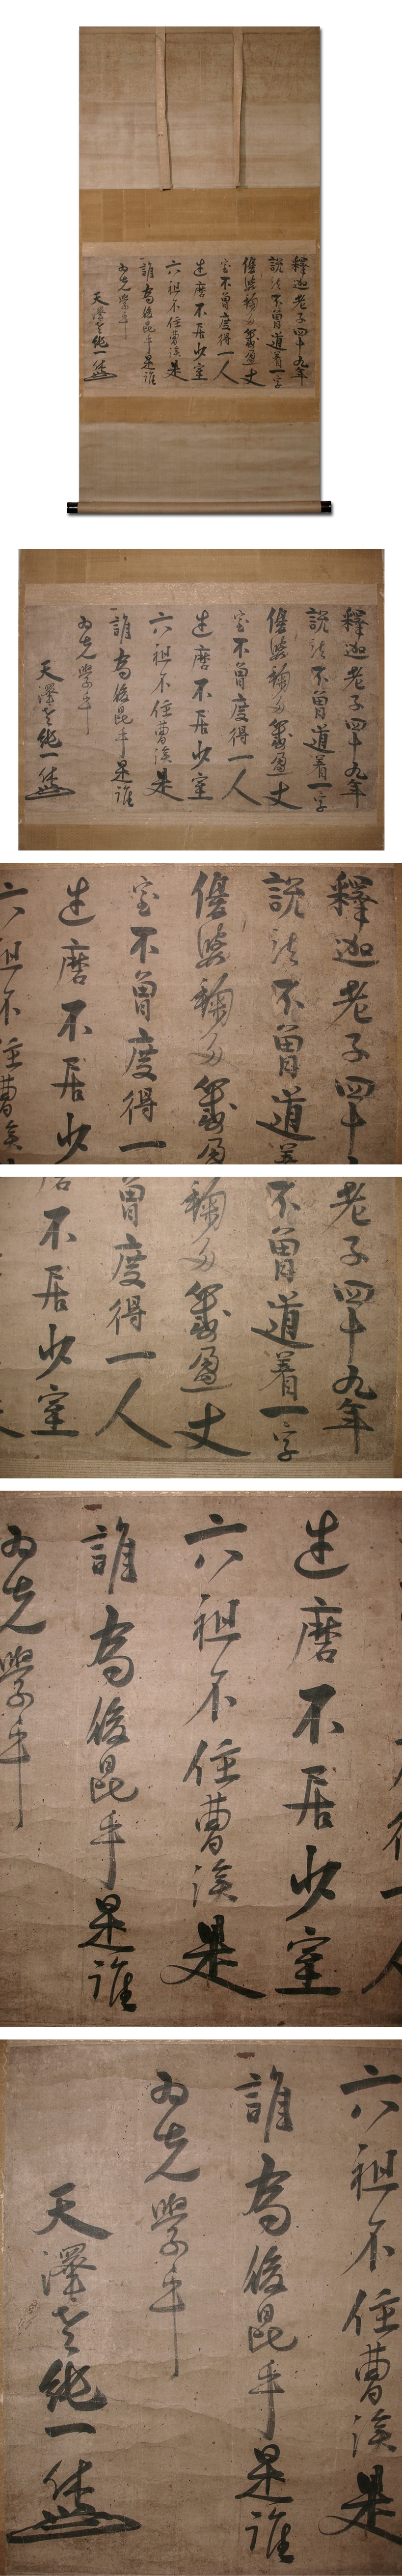 釋迦老子四十九年
説法不曽道着一字
優婆鞠多籌盈丈
室不曽度得一人
達磨不居少室
六祖不住曹溪是
誰為後昆乎是誰
為先學乎
天澤老純一休